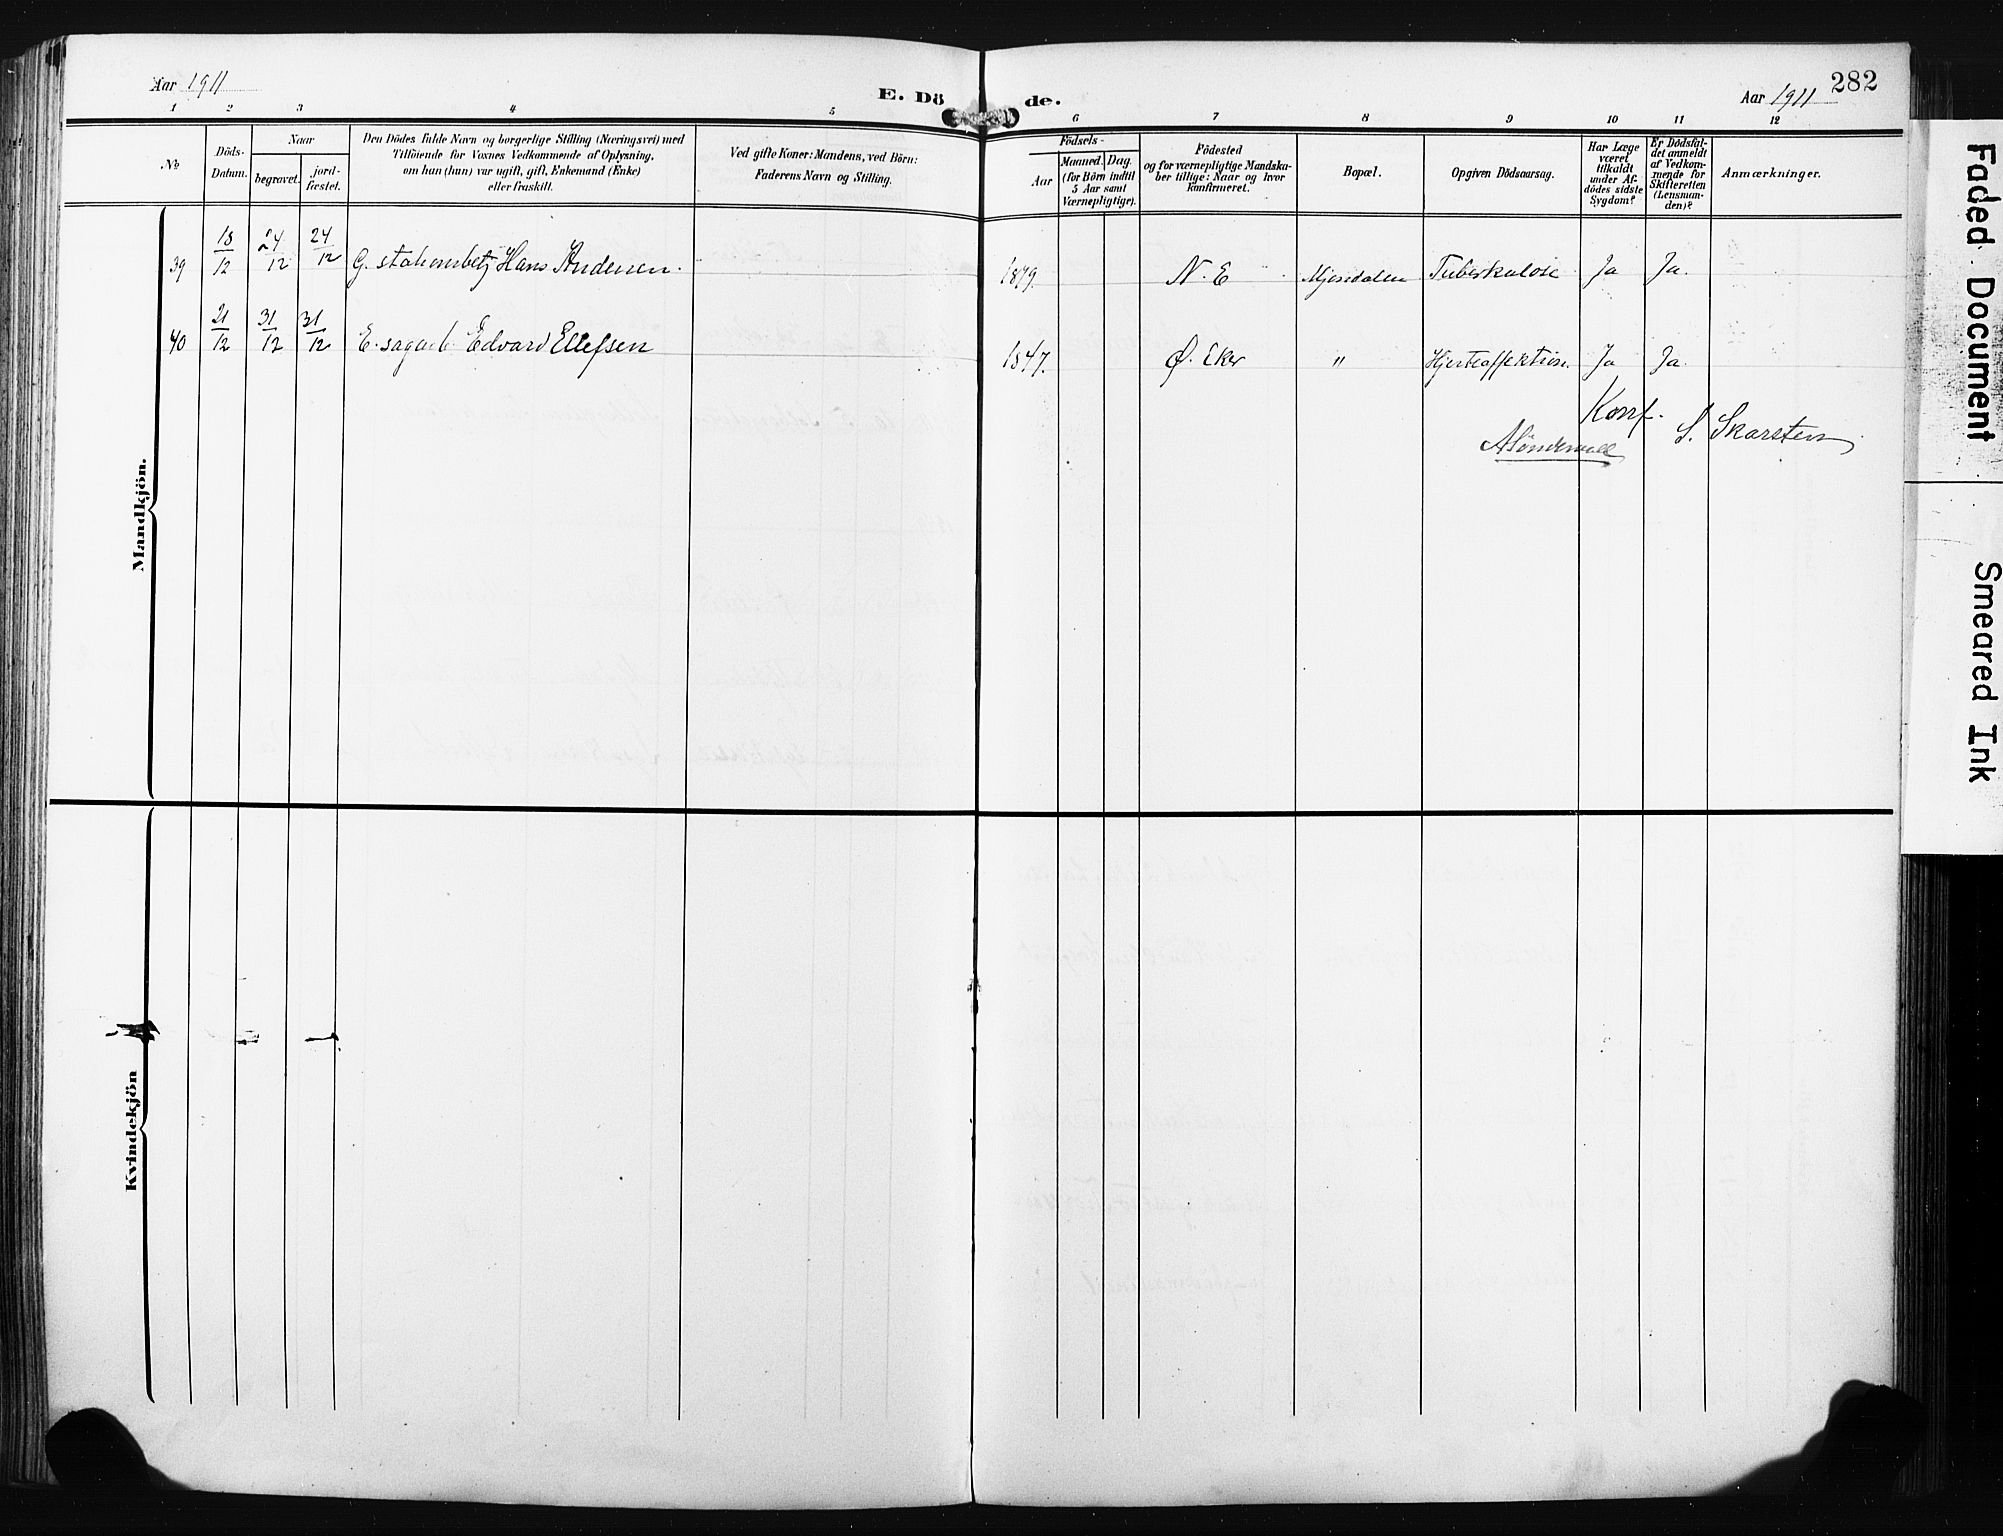 Aar 1911
E. Dö de.
Aar 1911
282
1 2 3 4 5 6 7 8 9 10 11 12
No
Döds-
Datum.
Naar
begravet.
jord-
fæstet.
Den Dödes fulde Navn og borgerlige Stilling (Næringsvei) med
Tilföiende for Voxnes Vedkommende af Oplysning,
om han (hun) var ugift, gift, Enkemand (Enke)
eller fraskilt.
Ved gifte Koner: Mandens, ved Börn:
Faderens Navn og Stilling.
Födsels-
Aar
Maaned. Dag.
(for Börn indtil
5 Aar samt
Værnepligtige).
Födested
og for værnepligtige Mandska-
ber tillige: Naar og hvor
konfirmeret.
Bopæl.
Opgiven Dödsaarsag.
Har Læge
været
tilkaldt
under Af-
dödes sidste
Sygdom?
Er Dödsfal-
det anmeldt
af Vedkom-
mende for
Skifteretten
(Lensman-
den)?
Anmærkninger.
Mandkjön.
39 18/12 24/12 24/12 G. stationsbetj Hans Andersen. 1879. N. E Mjøndalen Tuberkulose Ja Ja.
40 21/12 31/12 31/12 E. sagarb. Edvard Ellefsen 1847. Ø. Eker " Hjerteaffektion. Ja Ja.
Konf.
S. Skarsten
Kvindekjön
Faded Document
Smeared Ink